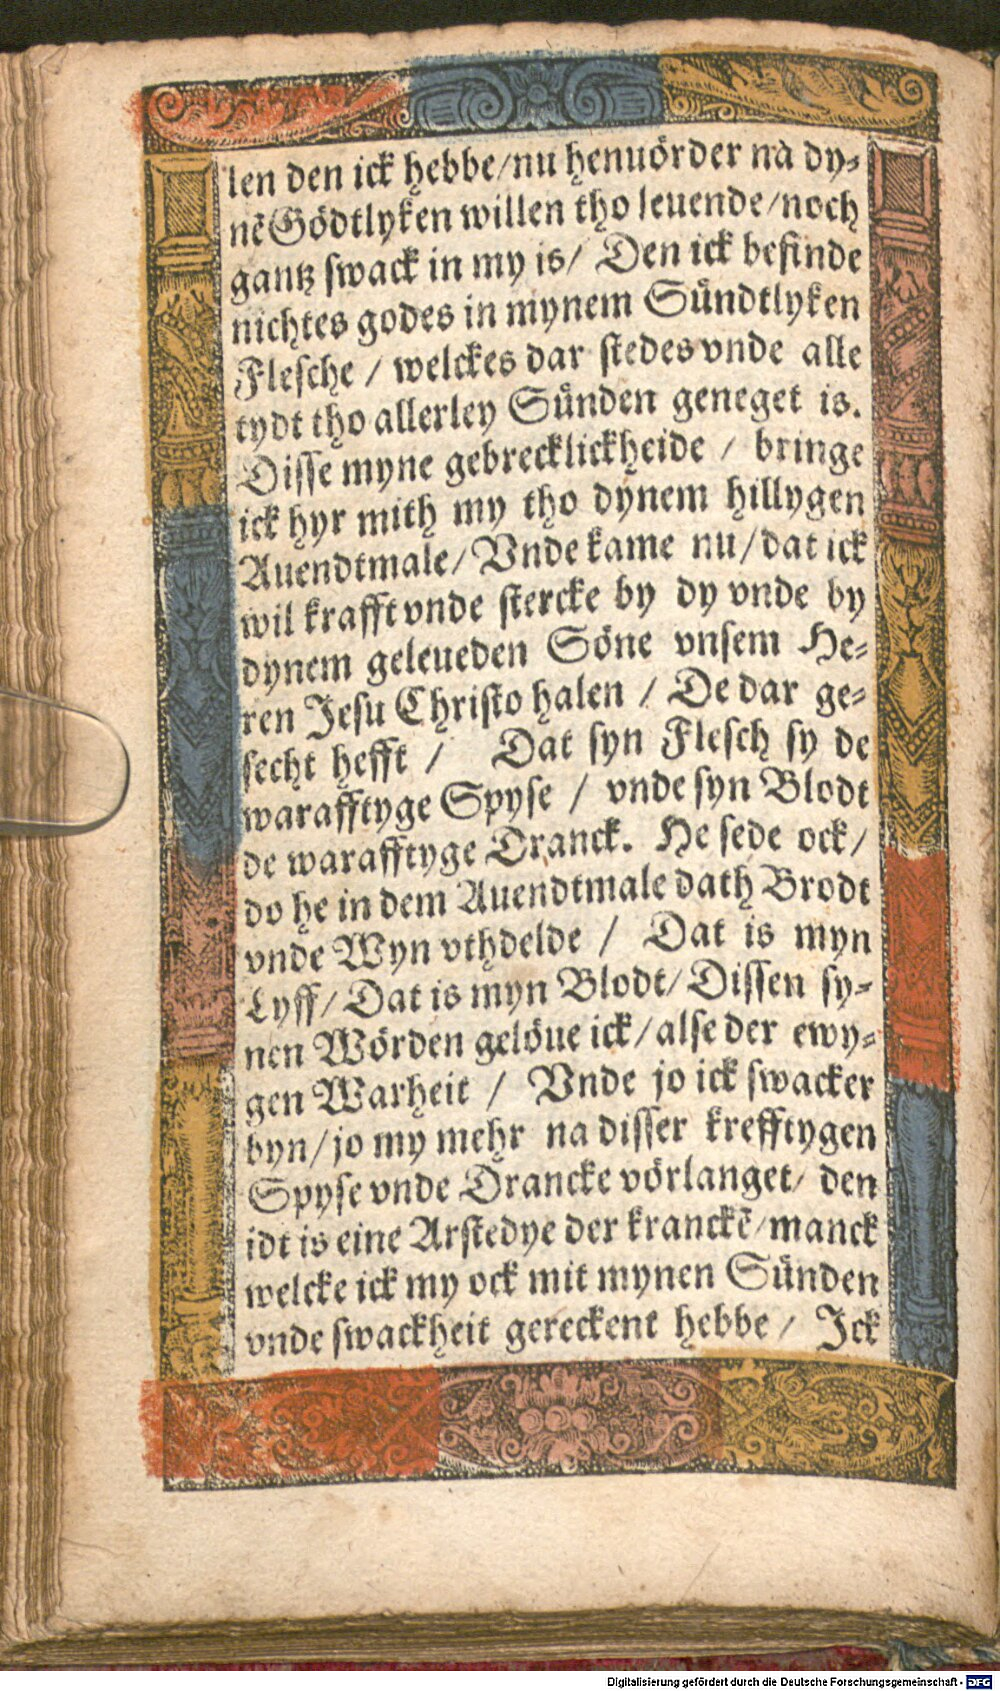 len den ick hebbe/nu henuörder na dy⸗
nē Gödtlyken willen tho leuende/noch
gantz swack in my is/ Den ick befinde
nichtes godes in mynem Sündtlyken
Flesche / welckes dar stedes vnde alle
tydt tho allerley Sünden geneget is.
Disse myne gebrecklickheide / bringe
ick hyr mith my tho dynem hillygen
Auendtmale/ Vnde kame nu/dat ick
wil krafft vnde stercke by dy vnde by
dynem geleueden Söne vnsem He⸗
ren Jesu Christo halen / De dar ge⸗
secht hefft / Dat syn Flesch sy de
warafftyge Spyse / vnde syn Blodt
de warafftyge Dranck. He sede ock/
do he in dem Auendtmale dath Brodt
vnde Wyn vthdelde / Dat is myn
Lyff/ Dat is myn Blodt/ Dissen sy⸗
nen Wörden gelöue ick/ alse der ewy⸗
gen Warheit / Vnde jo ick swacker
byn/ jo my mehr na disser krefftygen
Spyse vnde Drancke vörlanget/ den
idt is eine Arstedye der kranckē/manck
welcke ick my ock mit mynen Sünden
vnde swackheit gereckent hebbe / Ick
Digitalisierung gefördert durch die Deutsche Forschungsgemeinschaft - DFG